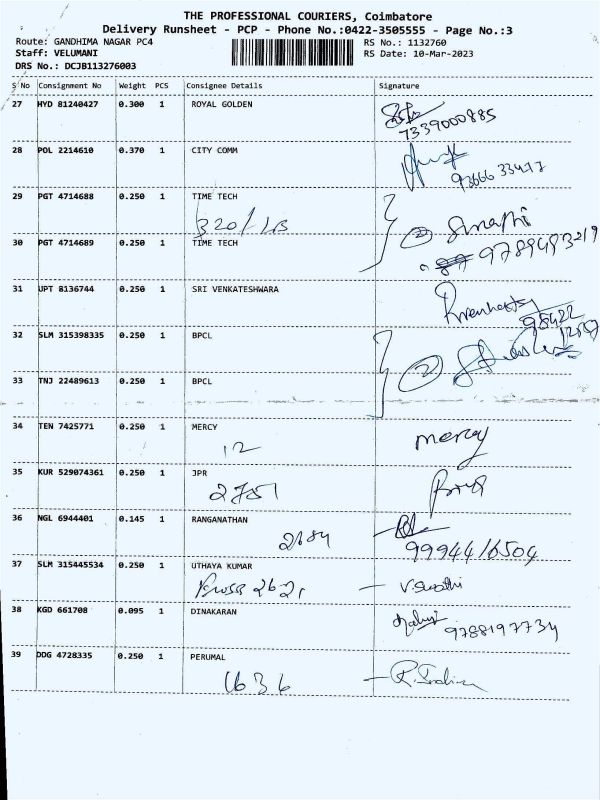 THE PROFESSIONAL COURIERS, Coimbatore
Delivery Runsheet - PCP - Phone No.:0422-3505555 - Page No.:3
Route: GANDHIMA NAGAR PC4 RS No.: 1132760
Staff: VELUMANI RS Date: 10-Mar-2023
DRS No.: DCJB113276003
S No Consignment No Weight PCS Consignee Details Signature
27 HYD 81240427 0.300 1 ROYAL GOLDEN
7339000885
28 POL 2214610 0.370 1 CITY COMM
93666 33417
29 PGT 4714688 0.250 1 TIME TECH
320/
30 PGT 4714689 0.250 1 TIME TECH
2
9789493219
31 UPT 8136744 0.250 1 SRI VENKATESHWARA
98422
32 SLM 315398335 0.250 1 BPCL
2
33 TNJ 22489613 0.250 1 BPCL
34 TEN 7425771 0.250 1 MERCY mercy
12
35 KUR 529074361 0.250 1 JPR
2751
36 NGL 6944401 0.145 1 RANGANATHAN
2184
9994416504
37 SLM 315445534 0.250 1 UTHAYA KUMAR
V. Swathi
38 KGD 661708 0.095 1 DINAKARAN
9788197734
39 DDG 4728335 0.250 1 PERUMAL
1636